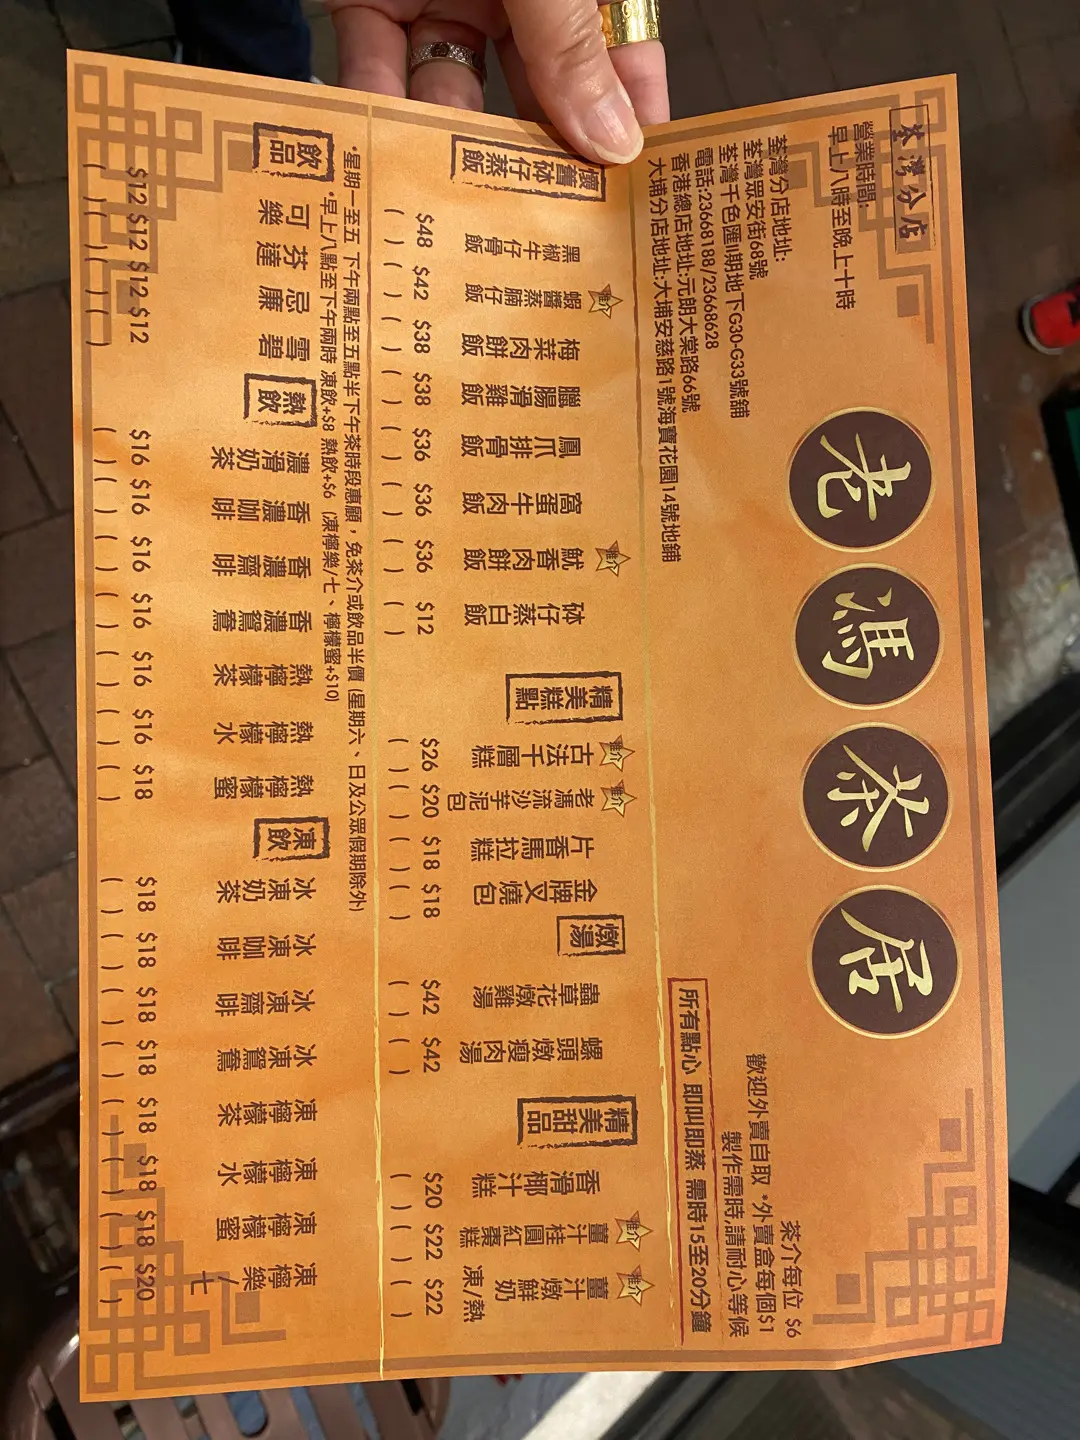 荃灣分店
營業時間:
早上八時至晚上十時
荃灣分店地址:
荃灣眾安街68號
荃灣千色匯II期地下G30-G33號舖
電話:23668188/23668628
香港總店地址:元朗大棠路66號
大埔分店地址:大埔安慈路1號海寶花園14號地舖
老馮茶居
茶介每位 $6
歡迎外賣自取 *外賣盒每個$1
製作需時,請耐心等候
所有點心 即叫即蒸 需時15至20分鐘
懷舊砵仔蒸飯
黑椒牛仔骨飯 $48 ( )
推介 蝦醬蒸腩仔飯 $42 ( )
梅菜肉餅飯 $38 ( )
臘腸滑雞飯 $38 ( )
鳳爪排骨飯 $36 ( )
窩蛋牛肉飯 $36 ( )
推介 魷香肉餅飯 $36 ( )
砵仔蒸白飯 $12 ( )
精美糕點
推介 古法千層糕 $26 ( )
推介 老馮流沙芋泥包 $20 ( )
片香馬拉糕 $18 ( )
金牌叉燒包 $18 ( )
燉湯
蟲草花燉雞湯 $42 ( )
螺頭燉瘦肉湯 $42 ( )
精美甜品
香滑椰汁糕 $20 ( )
推介 薑汁桂圓紅棗糕 $22 ( )
推介 薑汁燉鮮奶 凍/熱 $22 ( )
*星期一至五 下午兩點至五點半下午茶時段惠顧，免茶介或飲品半價 (星期六、日及公眾假期除外)
*早上八點至下午兩時 凍飲+$8 熱飲+$6 (凍檸樂/七、檸檬蜜+$10)
飲品
可樂 $12 ( )
芬達 $12 ( )
忌廉 $12 ( )
雪碧 $12 ( )
熱飲
濃滑奶茶 $16 ( )
香濃咖啡 $16 ( )
香濃齋啡 $16 ( )
香濃鴛鴦 $16 ( )
熱檸檬茶 $16 ( )
熱檸檬水 $16 ( )
熱檸檬蜜 $18 ( )
凍飲
冰凍奶茶 $18 ( )
冰凍咖啡 $18 ( )
冰凍齋啡 $18 ( )
冰凍鴛鴦 $18 ( )
凍檸檬茶 $18 ( )
凍檸檬水 $18 ( )
凍檸檬蜜 $18 ( )
凍檸樂/七 $20 ( )